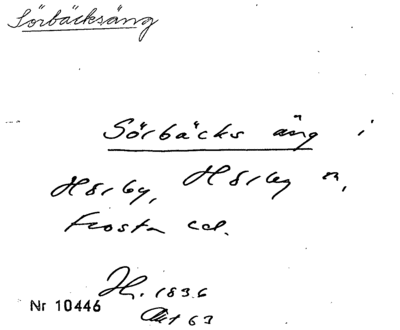 Sörbäcksäng
Sörbäcks äng i
Hörby, Hörby sn,
Frosta hd.
H. 1836
Akt 63
Nr 10446